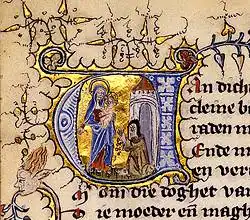 An dich
cleine b
raden n
Ende m
en ver
om die doghet var
ie moeder en̄ mag